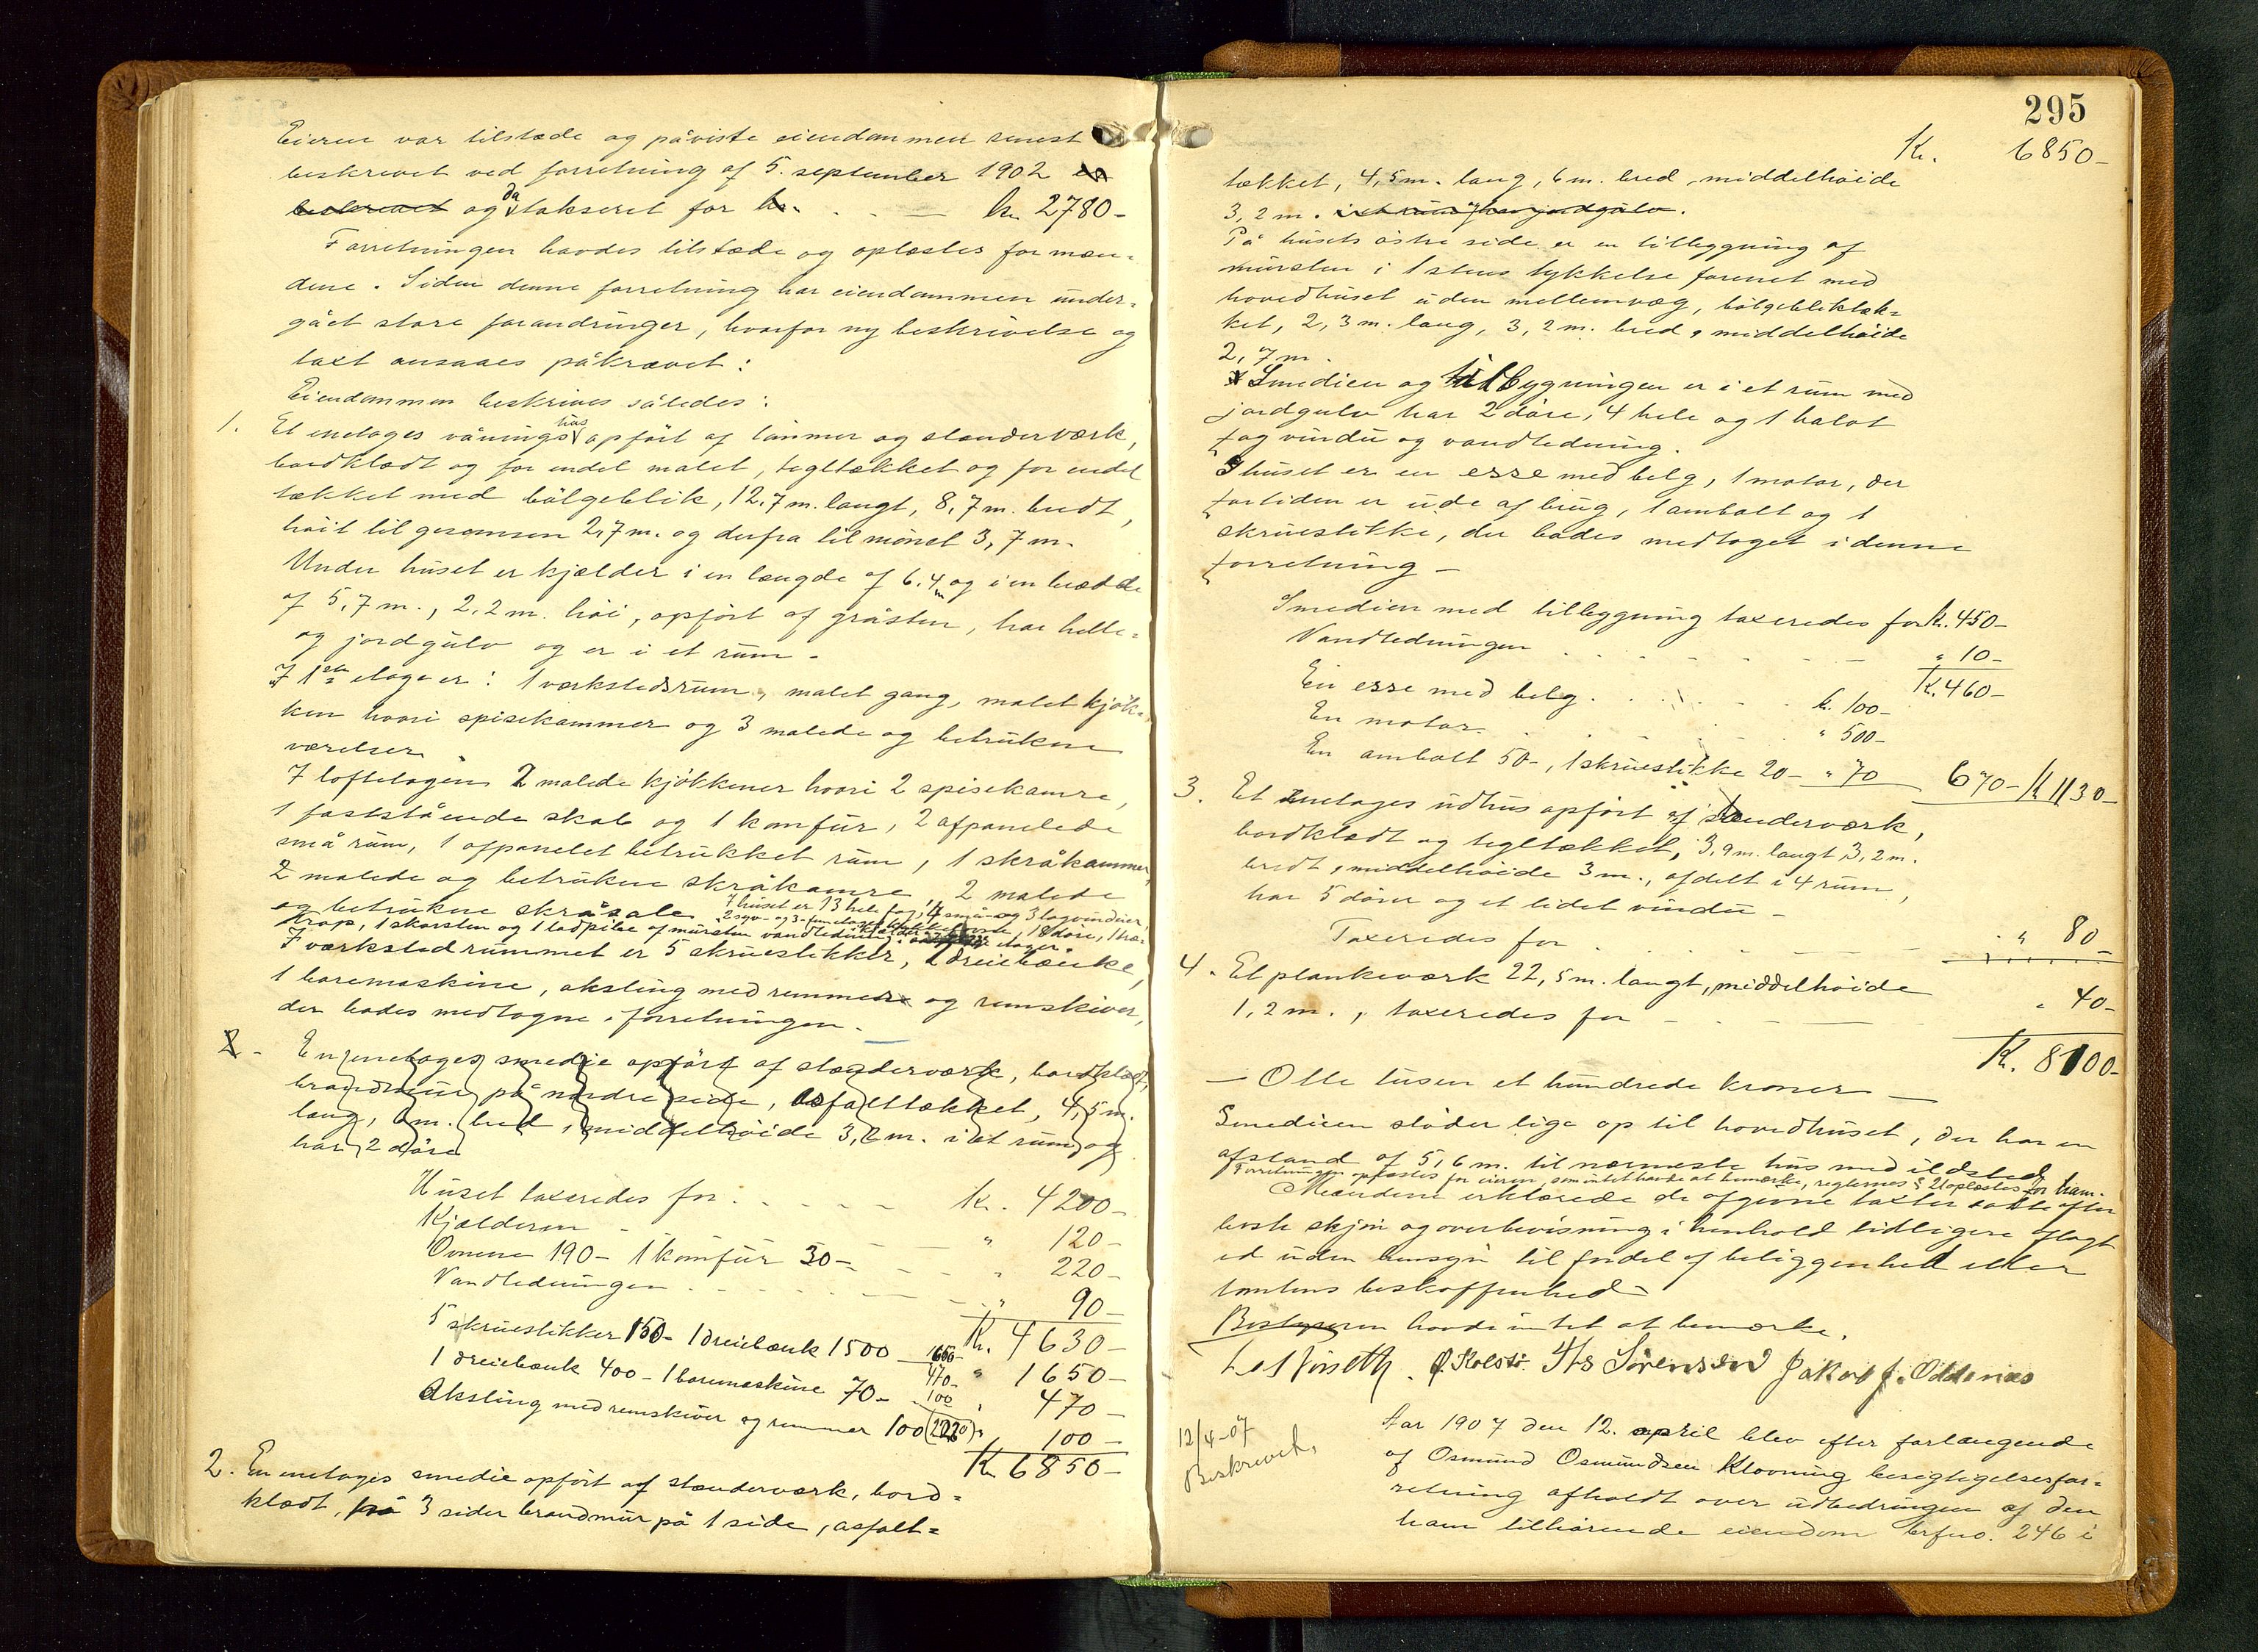 Eieren var tilstæde og påviste eiendommen senest
beskrevet ved forretning af 5. september 1902 en
beskrevet og da takseret for kr. . . — kr. 2780-
Forretningen havdes tilstæde og oplæstes for mæn-
dene. Siden denne forretning har eiendommen under-
gået store forandringer, hvorfor ny beskrivelse og
taxt ansaaes påkrævet:
Eiendommen beskrives således:
1. Et enetages vånings hus opført af tømmer og stenderværk,
bordklædt og for endel malet, tegltækket og for endel
tækket med bølgeblik, 12,7 m. langt, 8,7 m. bredt,
høit til gesemsen 2,7 m. og derfra til mønet 3,7 m.
Under huset er kjælder i en længde af 6,4 m og i en bredde
af 5,7 m., 2,2 m. høi, opført af gråsten, har helle-
og jordgulv og er i et rum.
I 1ste etage er: 1 værkstedsrum, malet gang, malet kjøk-
ken hvori spisekammer og 3 malede og betrukne
værelser.
I loftetagen 2 malede kjøkkener hvori 2 spisekamre,
1 faststående skab og 1 komfur, 2 afpanelede
små rum, 1 afpanelet betrukket rum, 1 skråkammer,
2 malede og betrukne skråkamre, 2 malede
og betrukne skråsale. I huset er 13 hele fag, 4 små- og 3 tagvinduer,
2 syv- og 3-
trap, 1 skorsten og 1 ladpibe af mursten vandledning i kjælder etager.
I værkstedrummet er 5 skruestikker, 2 dreiebænke,
1 boremaskine, aksling med remmer og remskiver,
der bødes medtagne i forretningen.
2. En enetages smedie opført af stenderværk, bordklædt,
brandmur på nordre side, asfalttækket, 4,5 m.
lang, 6 m. bred, middelhøide 3,2 m. i et rum og
har 2 døre
Huset taxeredes for . . . . — kr. 4200-
Kjælderen - " 120-
Ovnene 190- 1 komfur 30- - - " 220-
Vandledningen . . . . . . — " 90-
Kr. 4630-
5 skruestikker 150- 1 dreiebænk 1500 1650- " 1650-
1 dreiebænk 400- 1 boremaskine 70- 470- " 470-
Aksling med remskiver og remmer 100 100 (2220) " 100-
Kr. 6850-
2. En enetages smedie opført af stenderværk, bord-
klædt, på 3 sider brandmur på 1 side, asfalt-
295
Kr. 6850-
tækket, 4,5 m. lang, 6 m. bred, middelhøide
3,2 m. i et rum har jordgulv.
På husets østre side er en tilbygning af
mursten i 1 stens tykkelse forenet med
hovedhuset uden mellemvæg, bølgebliktæk-
ket, 2,3 m. lang, 3,2 m. bred, middelhøide
2,7 m.
Smedien og tilbygningen er i et rum med
jordgulv har 2 døre, 4 hele og 1 halvt
fag vindu og vandledning.
I huset er en esse med belg, 1 motor, der
fortiden er ude af brug, 1 ambolt og 1
skruestikke, der bødes medtaget i denne
forretning -
Smedien med tilbygning taxeredes for kr. 450-
Vandledningen . . . . . . - " 10-
Kr. 460-
En esse med belg . . . . . kr. 100-
En motor . . . . . " 500-
En ambolt 50-, 1 skruestikke 20- " 70 670- Kr 1130-
3. Et enetages udhus opført af stenderværk,
bordklædt og tegltækket, 3,9 m. langt 3,2 m.
bredt, middelhøide 3 m., afdelt i 4 rum,
har 5 døre og et lidet vindu -
Taxeredes for . . . . " 80-
4. Et plankeværk 22,5 m. langt, middelhøide
1,2 m., taxeredes for - - - — " 40-
Kr. 8100-
— Otte tusen et hundrede kroner —
Smedien støder lige op til hovedhuset, der har en
afstand af 5,6 m. til nærmeste hus med ildsted
Forretningen oplæstes for eieren, som intet havde at bemærke, reglernes § 21 oplæstes for ham.
Mændene erklærede de afgivne taxter satte efter
beste skjøn og overbevisning i henhold tidligere aflagt
ed uden hensyn til fordel af beliggenhed eller
tomtens beskaffenhed -
Bestyreren havde intet at bemærke.
O. Kolstø. Hs Sørensen Jakob J. Oddenæs
12/4-07
Beskrevet.
Aar 1907 den 12. april blev efter forlangende
af Osmund Osmundsen Klovning besigtigelsesfor-
retning afholdt over udbedringen af den
ham tilhørende eiendom brfno. 246 i